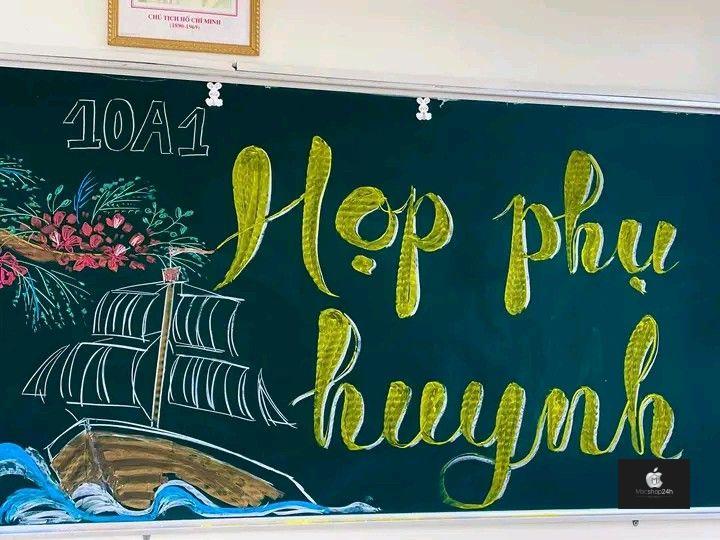 CHỦ TỊCH HỒ CHÍ MINH
(1890-1969)
10A1
Họp phụ
huynh
Macshop24h